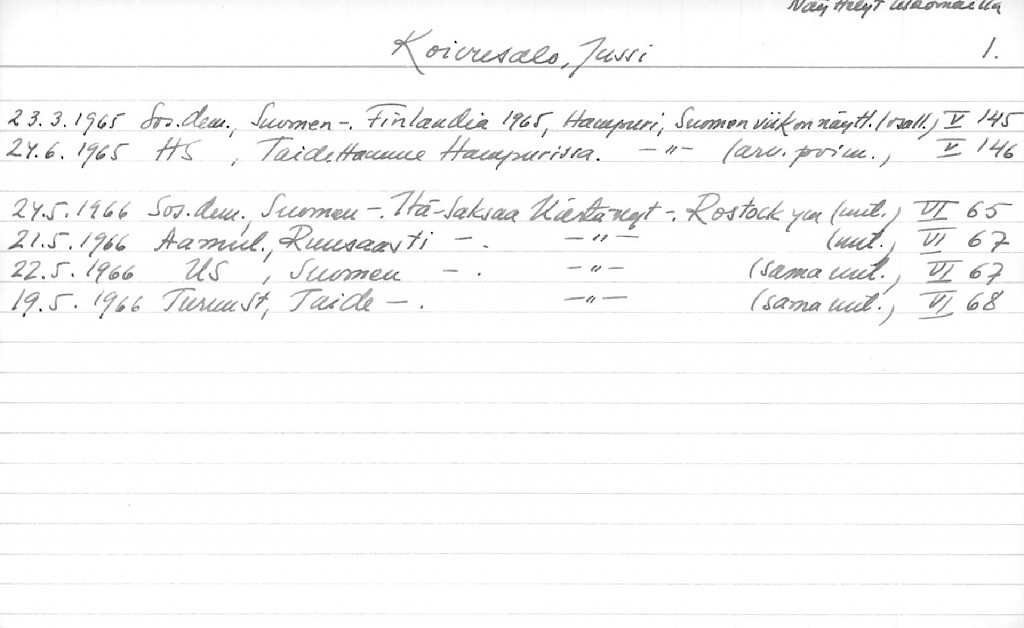 Näyttelyt ulkomailla
Koivusalo, Jussi 1.
23.3.1965 Sos.dem., Suomen -. Finlandia 1965, Hampuri, Suomen viikon näytt. (osall.) V 145
24.6.1965 HS , Taidettamme Hampurissa. -"- (arv. poim., V 146
24.5.1966 Sos.dem., Suomen -. Itä-Saksaa kiertänyt -. Rostock ym (uut.) VI 65
21.5.1966 Aamul., Ruusaasti -. -"- (uut., VI 67
22.5.1966 US , Suomen -. -"- (sama uut., VI 67
19.5.1966 Turunst, Taide -. -"- (sama uut.) VI 68